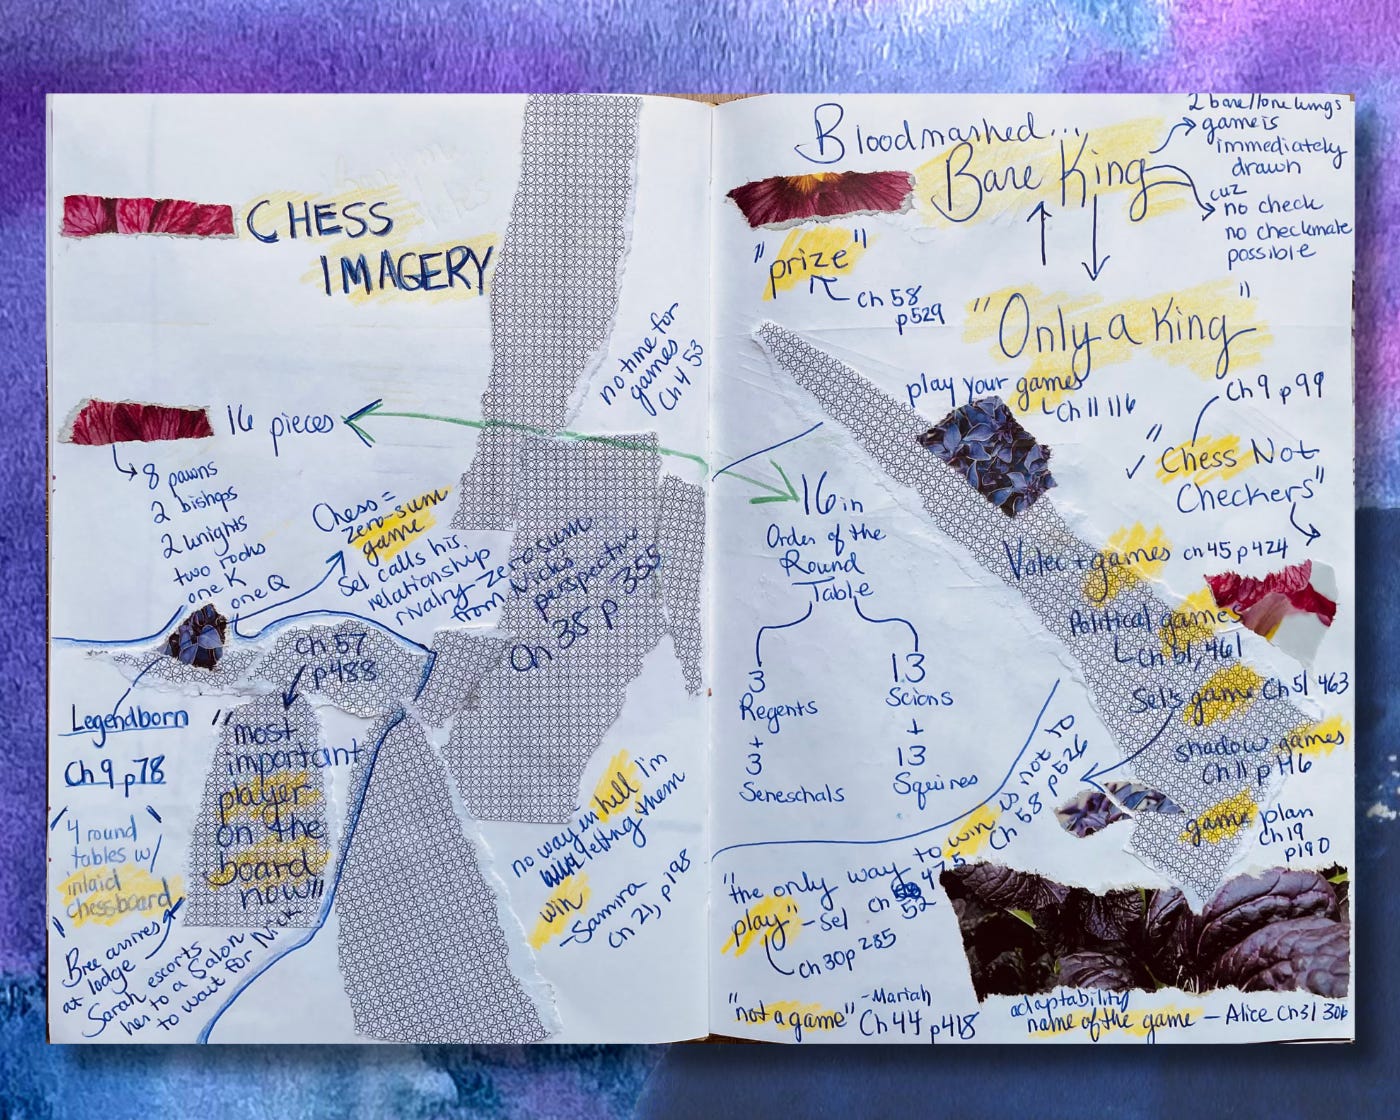 CHESS
IMAGERY
16 pieces
8 pawns
2 bishops
2 knights
two rooks
one K
one Q
Chess =
zero-sum
game
Sel calls his
relationship
rivalry-zero sum
from Nick's
perspective
Ch 35 p 355
no time for
games
Ch 4 53
Legendborn
Ch 9 p78
"4 round
tables w/
inlaid
chessboard"
Bree arrives
at lodge
Sarah escorts
her to a Salon
to wait for
Nick
Ch 57
p488
"most
important
player
on the
board
now"
no way in hell I'm
letting them
win
-Samira
Ch 21, p198
Bloodmarked...
Bare King
2 bare/lone kings
game is
immediately
drawn
cuz
no check
no checkmate
possible
"prize"
Ch 58
p529
"Only a King"
play your games
Ch 11 116
Ch 9 p99
"Chess Not
Checkers"
16 in
Order of the
Round
Table
3
Regents
+
3
Seneschals
13
Scions
+
13
Squires
Valec + games ch 45 p424
Political games
Ch 51, 461
Sel's game Ch 51 463
shadow games
Ch 11 p 116
game plan
Ch 19
p190
"the only way to win is not to
play" - Sel ch 52 475
Ch 58 p526
Ch 30 p 285
"not a game" -Mariah
Ch 44 p418
adaptability
name of the game - Alice Ch 31 306